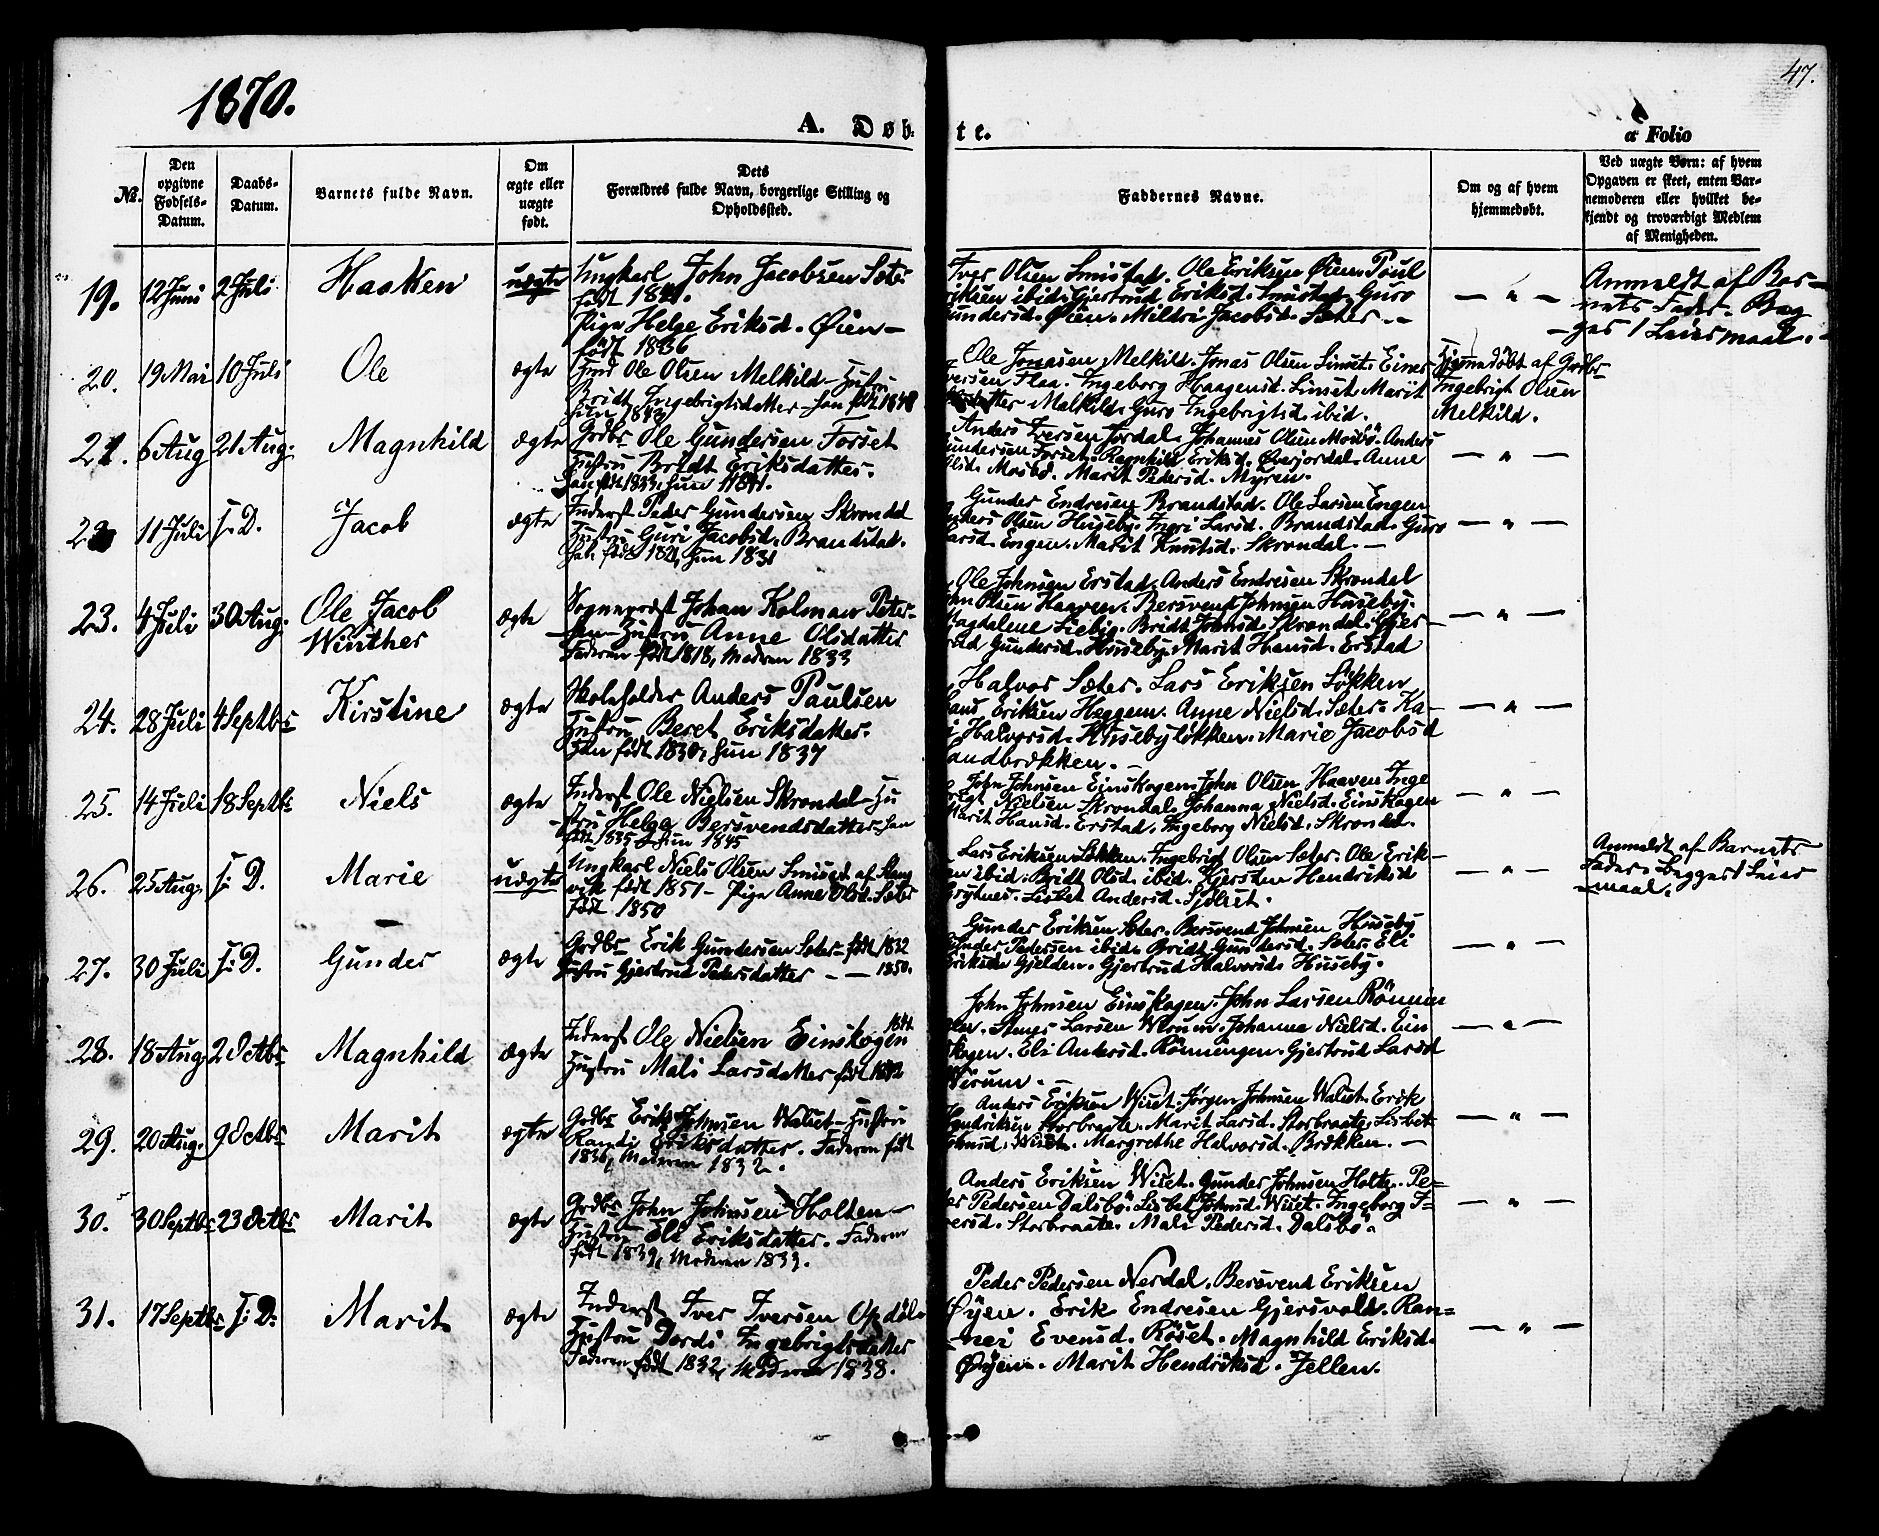 1870.
47.
A. Døb-
te.
a Folio
No.
Den opgivne Fødsels-Datum.
Daabs-Datum.
Barnets fulde Navn.
Om ægte eller uægte født.
Dets Forældres fulde Navn, borgerlige Stilling og Opholdssted.
Faddernes Navne.
Om og af hvem hjemmedøbt.
Ved uægte Børn: af hvem
Opgaven er skeet, enten Bar-
nemoderen eller hvilket be-
kjendt og troværdigt Medlem
af Menigheden.
19. 12 Juni 2 Juli Haaken uægte
Ungkarl John Jacobsen Sæter
født 1841.
Pige Helge Eriksd. Øien —
født 1836
Iver Olsen Smistad. Ole Eriksen Øien. Poul
Eriksen ibid. Gjertrud Eriksd. Smistad. Guro
Gundersd. Øien. Mildri Jacobsd. Sæter. —
— " —
Anmeldt af Bar-
nets Fader. Beg-
ges 1 Leiermaal.
20. 19 Mai 10 Juli Ole ægte
Gmd Ole Olsen Melkild — Hustru
Bridt Ingebrigtsdatter — han født 1848
hun 1843
Ole Jonassen Melkild. Jonas Olsen Linset. Einer
Iversen Flaa. Ingeborg Haagensd. Linset. Marit
Melkild. Guro Ingebrigtsd. ibid.
Hjemdøbt af Grdbr
Ingebrigt Olsen
Melkild.
21. 6 Aug 21 Aug. Magnhild ægte
Grdbr Ole Gundersen Forset
Hustru Bridt Eriksdatter.
Han født 1833, hun 1841.
Anders Iversen Jordal. Johannes Olsen Mosbö. Anders
Gundersen Forset. Ragnhild Eriksd. Øverjordal. Anne
Olsd. Mosbö. Marit Pedersd. Myren.
— " —
22 11 Juli I: D. Jacob ægte
Inderst Peder Gundersen Skrondal
Hustru Guri Jacobsd. Brandstad.
Han født 1821, hun 1831
Gunder Endresen Brandstad. Ole Larsen Engen
Anders Olsen Huseby. Ingri Larsd. Brandstad. Guro
Larsd. Engen. Marit Knutsd. Skrondal. —
— " —
23. 4 Juli 30 Aug. Ole Jacob
Winther ægte
Sognepræst Johan Kolman Peter-
sen — Hustru Anne Olsdatter
Faderen født 1818, Moderen 1833
Ole Johnsen Erstad. Anders Endresen Skrondal
John Olsen Haaven. Bersvend Johnsen Huseby.
Magdalene Liebig. Bridt Johnsd. Skrondal. Gjer-
trud Gundersd. Huseby. Marit Hansd. Erstad
— " —
24. 28 Juli 4 Septbr Kirstine ægte
Skoleholder Anders Paulsen
Hustru Beret Eriksdatter.
Han født 1830, hun 1837
Halvor Sæter. Lars Eriksen Løkken
Hans Eriksen Heggem. Anne Nielsd. Sæter. Ka-
ri Halvorsd. Husebyløkken. Marie Jacobsd
Sandbrækken. —
— " —
25. 14 Juli 18 Septbr Niels ægte
Inderst Ole Nielsen Skrondal — Hu
stru Helga Bersvendsdatter — han
født 1835 hun 1845
John Johnsen Einskogen. John Olsen Haaven. Inge
brigt Nielsen Skrondal. Johanna Nielsd. Einskogen
Marit Hansd. Erstad. Ingeborg Nielsd. Skrondal.
— " —
26. 25 Aug. I: D. Marie uægte
Ungkarl Niels Olsen af Slang
vik født 1851 — Pige Anne Olsd. Sæter
født 1850
Lars Eriksen Løkken. Ingebrigt Olsen Sæter. Ole Erik-
sen ibid. Bridt Olsd. ibid. Kjersten Hendriksd
Grytnes. Lisbet Andersd.
— " —
Anmeldt af Barnets
Fader. Begges 1 Leier
maal.
27. 30 Juli I: D. Gunder ægte
Grdbr Erik Gundersen Sæter — født 1832
Hustru Gjertrud Pedersdatter — — 1850.
Gunder Eriksen Sæter. Bersvend Johnsen Huseby
Gunder Pedersen ibid. Bridt Gundersd. Sæter. Eli
Eriksd. Gjelden. Gjertrud Halvorsd. Huseby.
— " —
28. 18 Aug. 2 Octbr Magnhild ægte
Inderst Ole Nielsen Einskogen 1841
Hustru Mali Larsdatter født 1842
John Johnsen Einskogen. John Larsen Rönnin
Larsen Worum. Johanna Nielsd. Ein
skogen. Eli Andersd. Rönningen. Gjertrud Larsd
Wörum. —
— " —
29. 20 Aug. 9 Octbr Marit ægte
Grdbr Erik Johnsen Waliset — Hustru
Randi Eriksdatter. Faderen født
1836, Moderen 1832.
Anders Eriksen Wiset. Jörgen Johnsen Waliset. Erik
Hendriksen Storbraate. Marit Larsd. Storbraate. Lisbet
Johnsd. Wiset. Margrethe Halvorsd. Brækken. —
— " —
30. 30 Septbr 23 Octbr Marit ægte
Grdbr John Johnsen Holten —
Hustru Eli Eriksdatter. Faderen
født 1839, Moderen 1839.
Anders Eriksen Wiset. Gunder Johnsen Holte. Pe-
der Pedersen Dalsbö. Lisbet Johnsd. Wiset. Ingeborg I-
versd. Storbraate. Mali Pedersd. Dalsbö.
— " —
31. 17 Septbr I: D. Marit ægte
Inderst Iver Iversen Opdöl
Hustru Dordi Ingebrigtsdatter
Faderen født 1832, Moderen 1838.
Peder Pedersen Nerdal. Bersvend Eriksen
Øyen. Erik Endresen Gjersvold. Ran-
nei Evensd. Röset. Magnhild Eriksd.
Øyen. Marit Hendriksd. Jellen.
— " —